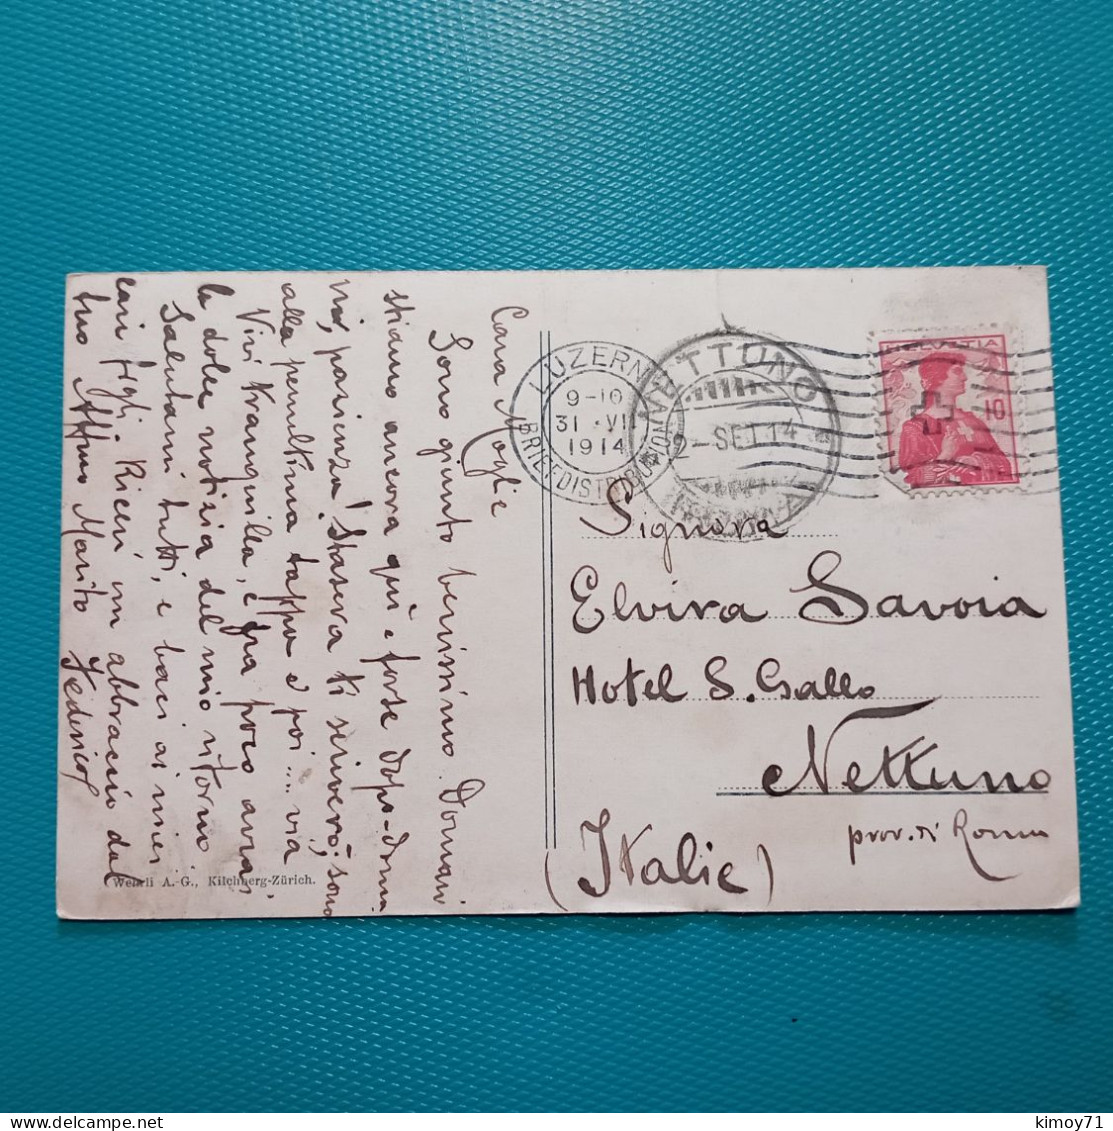 Cara Moglie
Sono giunto benissimo. Domani
stiamo ancora qui e forse dopo-doma
ni, pazienza! Stasera ti scriverò; sono
alla penultima tappa e poi... via
Vivi tranquilla, e fra poco avrai
la dolce notizia del mio ritorno
Salutami tutti, e baci ai miei
cari figli. Ricevi un abbraccio dal
tuo Affmo Marito Federico
Wehrli A.-G., Kilchberg-Zürich.
LUZERN
9-10
31 VII
1914
BRIEFDISTRIBUTION
NETTUNO
2-SET 14
HELVETIA
10
Signora
Elvira Savoia
Hotel S. Gallo
Nettuno
prov. di Roma
(Italie)
kimoy71